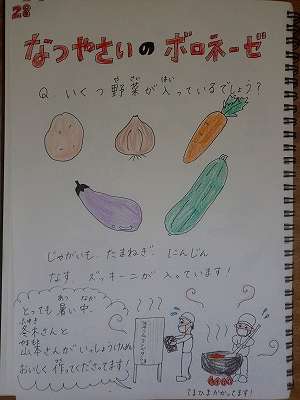 28
なつやさいの ボロネーゼ
Q. いくつ野菜が入っているでしょう?
やさい はい
じゃがいも、たまねぎ、にんじん
なす、ズッキーニが入っています!
あつ なか
とっても暑い中、
ふゆき
冬木さんと
やまもと
山本さんがいっしょうけんめい
おいしく作ってくださってます!
てまひまかかってます!